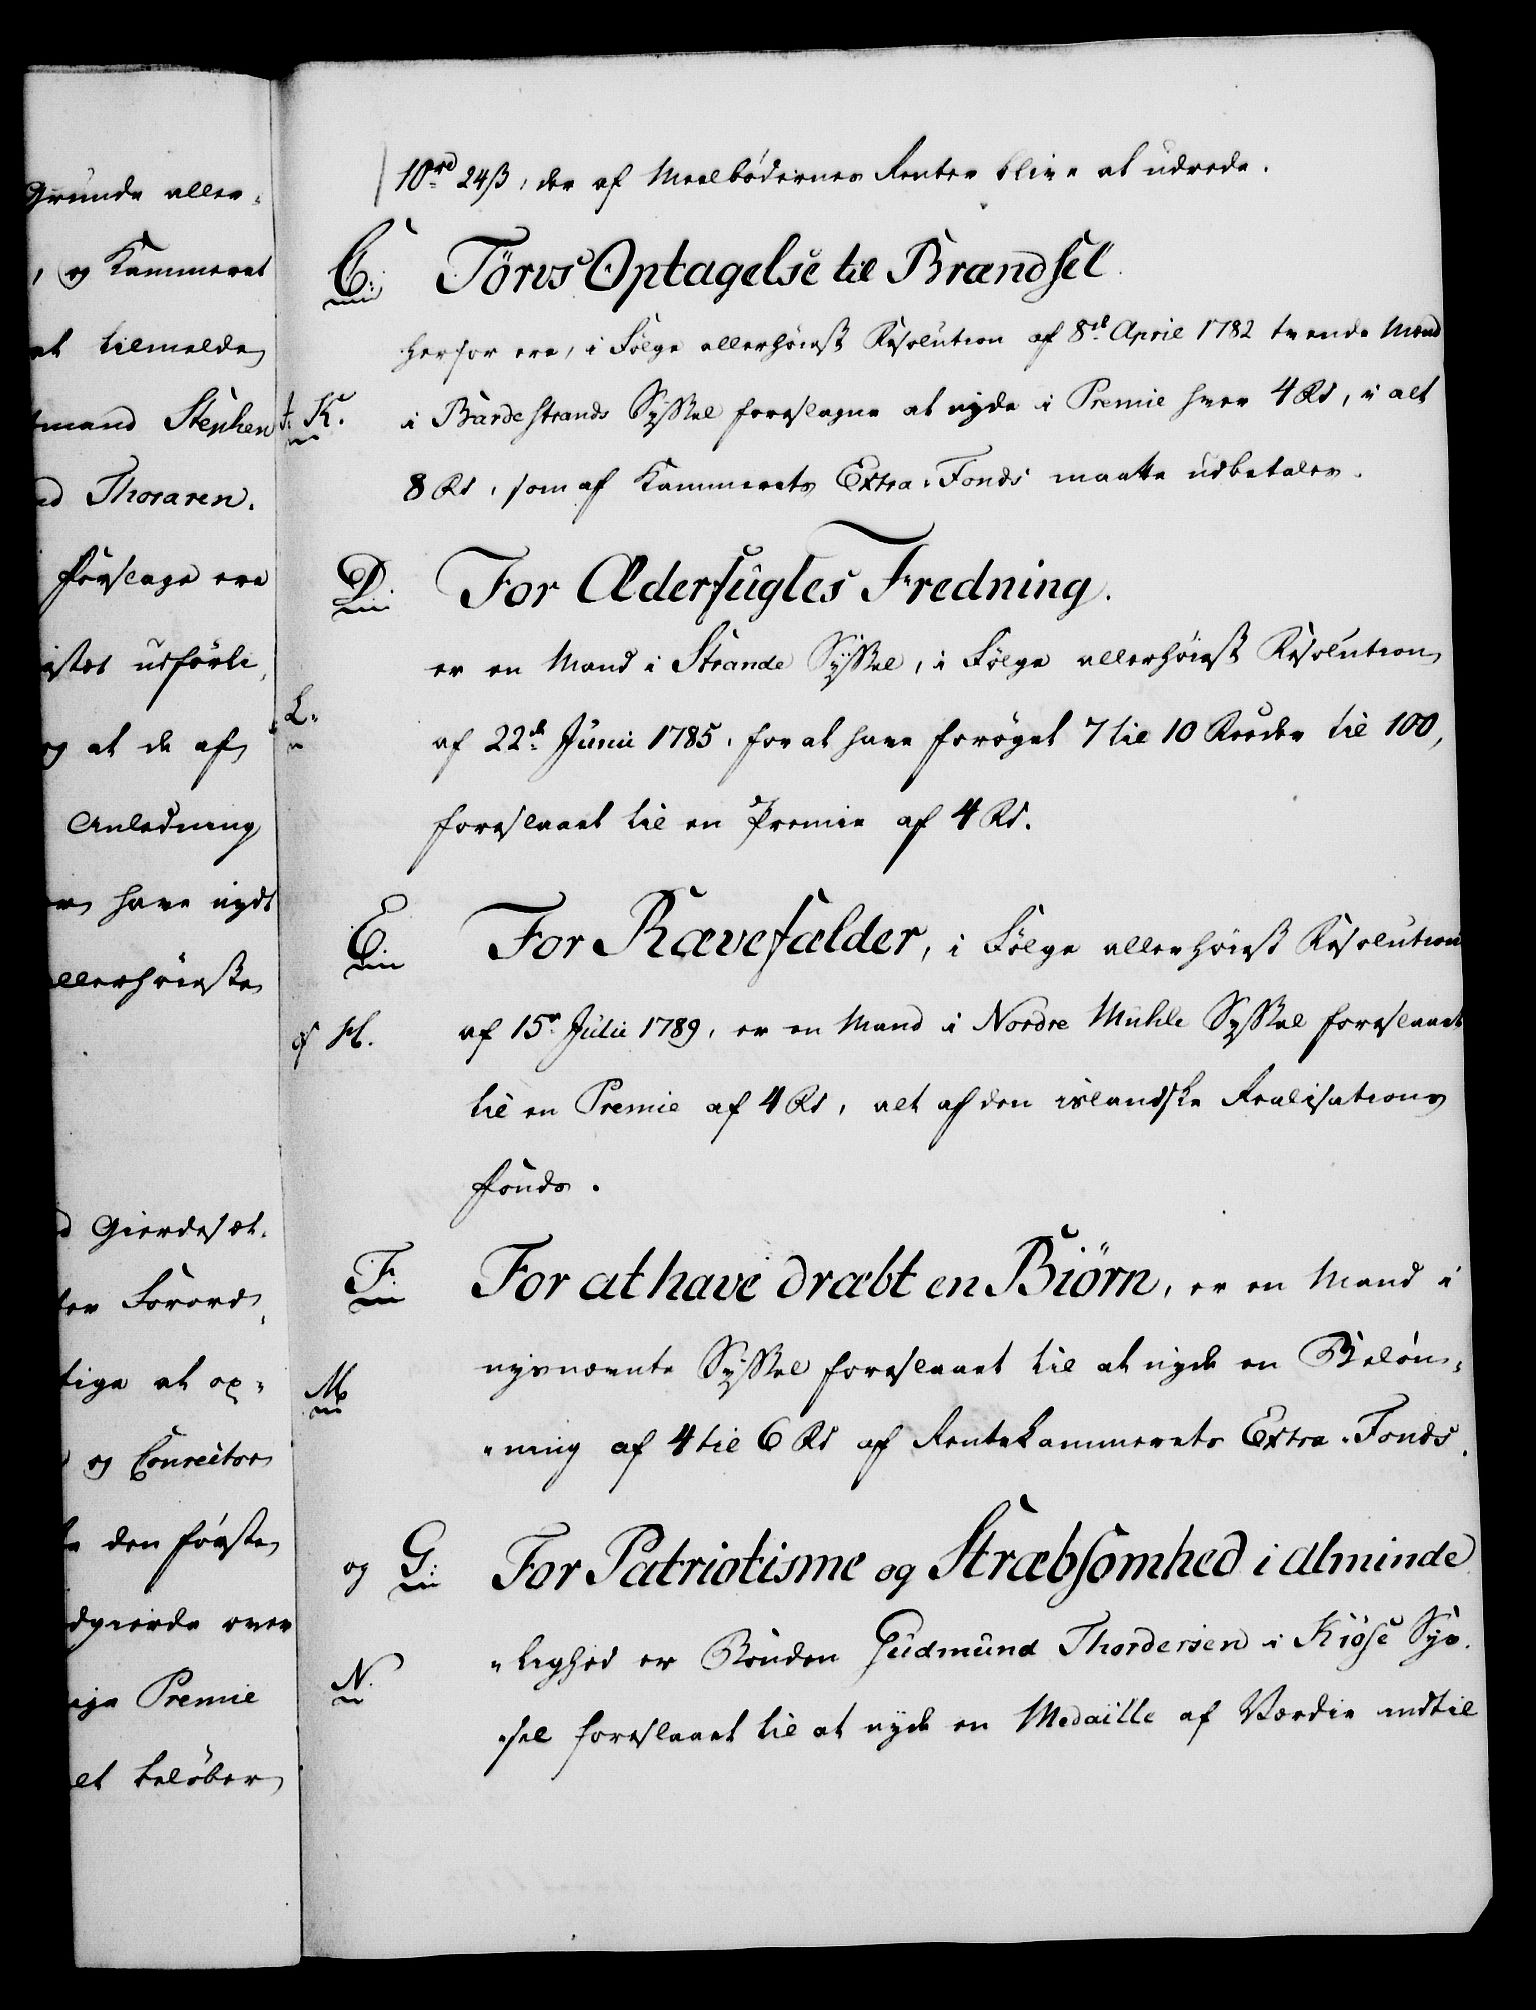 Grunde aller-
, og Kammeret
at tilmelde
tmand Stephen
ed Thoraren.
Forslage ere
udførli,
og at de af
Anledning
have nydt
allerhøieste
d Gierdesæt,
ter Forord,
tige at op-
og Conrector
den første
dgierde over
Premie
beløber
10rd 24ß, der af Meelbødernes Renter blive at udrede.
C: Tørvs Optagelse til Brændsel.
herfor ere, i Følge allerhøiest Resolution af 8de April 1782 tvende Mænd
K. i Bardestrands Syssel foreslagne at nyde i Premie hver 4 Rd, i alt
8 Rd, som af Kammerets Extra-Fonds maatte udbetales.
D: For Æderfugles Fredning.
er en Mand i Strande Syssel, i Følge allerhøiest Resolution
L. af 22de Junii 1785, for at have forøget 7 til 10 Reeder til 100,
foreslaaet til en Premie af 4 Rd.
E: For Rævefælder, i Følge allerhøiest Resolution
af 15de Julii 1789, er en Mand i Nordre Muhle Syssel foreslaaet
til en Premie af 4 Rd, alt af den islandske Realisations
Fonds.
F: For at have dræbt en Biørn, er en Mand i
M. nysnævnte Syssel foreslaaet til at nyde en Beløn-
-ning af 4 til 6 Rd af Rentekammerets Extra-Fonds.
og G: For Patriotisme og Stræbsomhed i Alminde
N. -lighed er Bonden Gudmund Thordersen i Kiøse Sys-
-sel foreslaaet til at nyde en Medaille af Værdie indtil